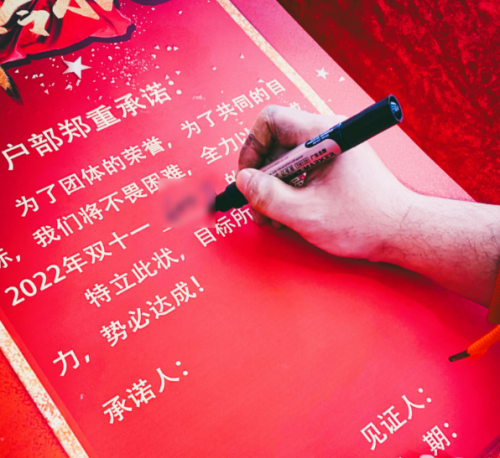 户部郑重承诺：
为了团体的荣誉，为了共同的目
标，我们将不畏困难，全力以
2022年双十一
特立此状，目标所
力，势必达成！
承诺人：
见证人：
期：